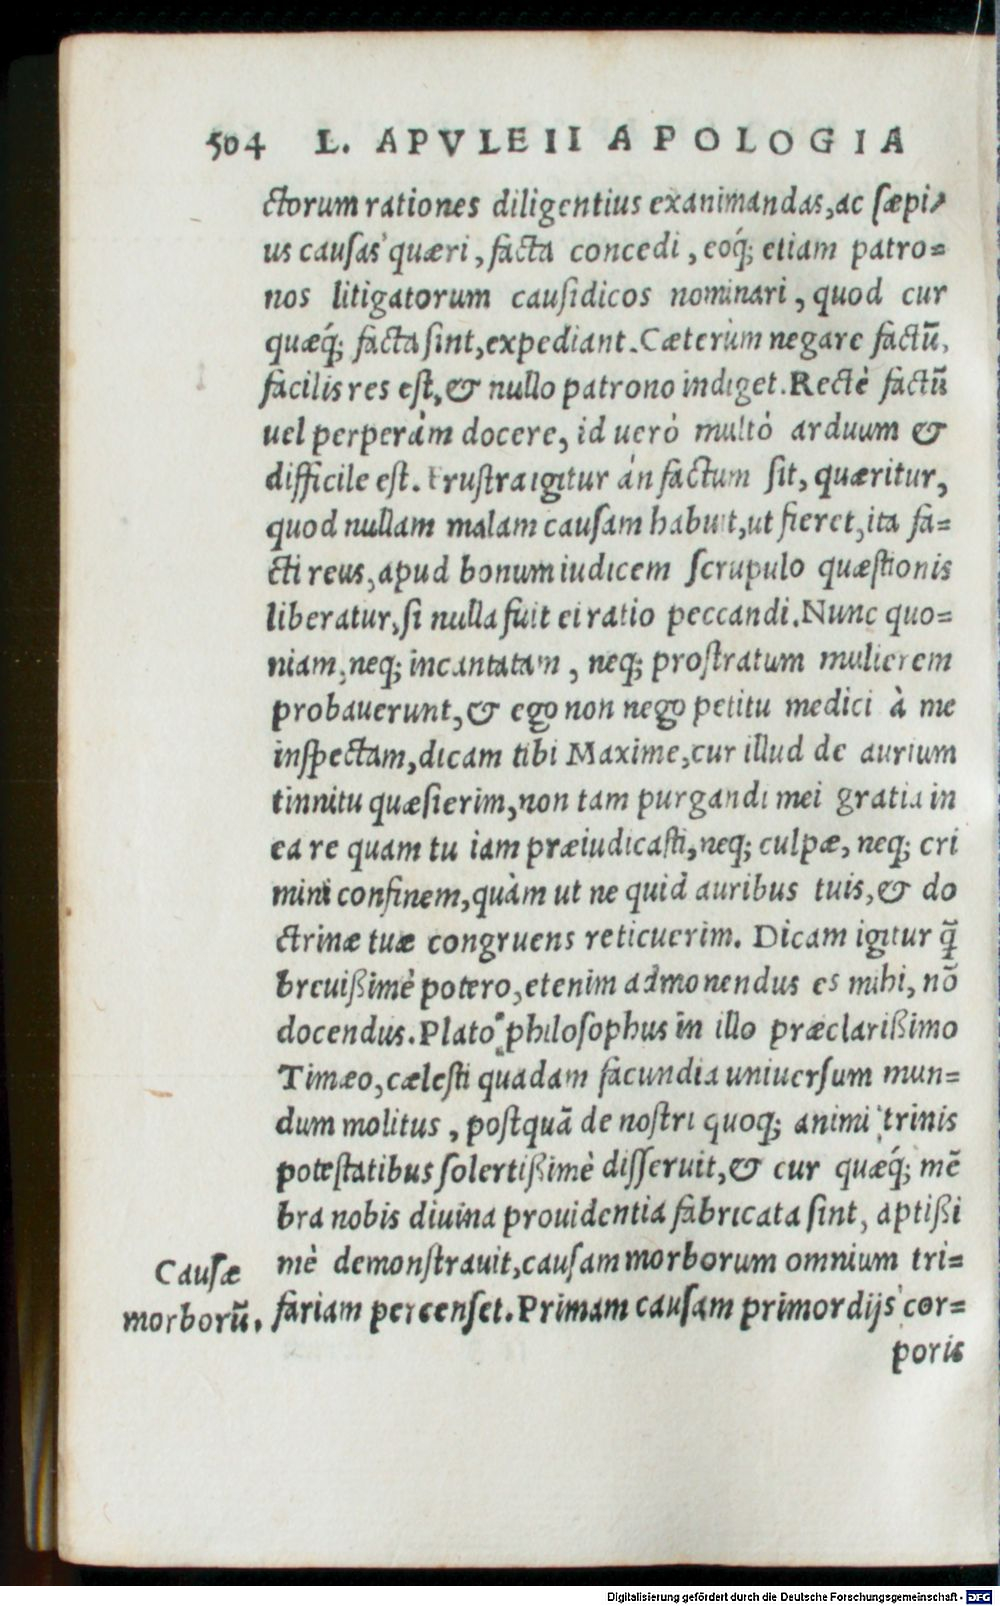 504 L. APVLEII APOLOGIA
ctorum rationes diligentius exanimandas, ac sæpi-
us causas quæri, facta concedi, eoq́; etiam patro=
nos litigatorum causidicos nominari, quod cur
quæq́; facta sint, expediant. Cæterùm negare factũ,
facilis res est, & nullo patrono indiget. Rectè factũ
uel perperàm docere, id uerò multò arduum &
difficile est. Frustra igitur án factum sit, quæritur,
quod nullam malam causam habuit, ut fieret, ita fa=
cti reus, apud bonum iudicem scrupulo quæstionis
liberatur, si nulla fuit ei ratio peccandi. Nunc quo=
niam, neq; incantatam, neq; prostratum mulierem
probauerunt, & ego non nego petitu medici à me
inspectam, dicam tibi Maxime, cur illud de aurium
tinnitu quæsierim, non tam purgandi mei gratia in
ea re quam tu iam præiudicasti, neq; culpæ, neq; cri
mini confinem, quàm ut ne quid auribus tuis, & do
ctrinæ tuæ congruens reticuerim. Dicam igitur q̃
breuißimè potero, etenim admonendus es mihi, nõ
docendus. Plato philosophus in illo præclarißimo
Timæo, cælesti quadam facundia uniuersum mun=
dum molitus, postquã de nostri quoq; animi trinis
potestatibus solertißimè disseruit, & cur quæq́; mẽ
bra nobis diuina prouidentia fabricata sint, aptißi
mè demonstrauit, causam morborum omnium tri=
fariam percenset. Primam causam primordijs cor=
poris
Causæ
morborũ.
Digitalisierung gefördert durch die Deutsche Forschungsgemeinschaft - DFG